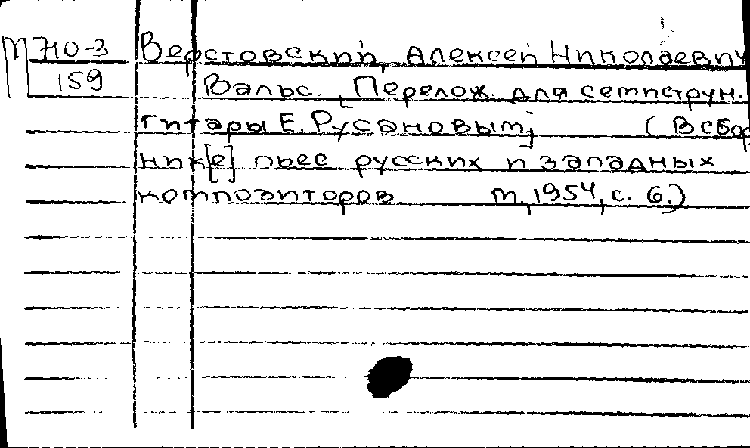 М 710-3 Верстовский, Алексей Николаевич
159 Вальс. Перелож. для семиструн.
гитары Е. Русановым; (В сбор
ник[е] пьес русских и западных
композиторов М, 1954, с. 6.)